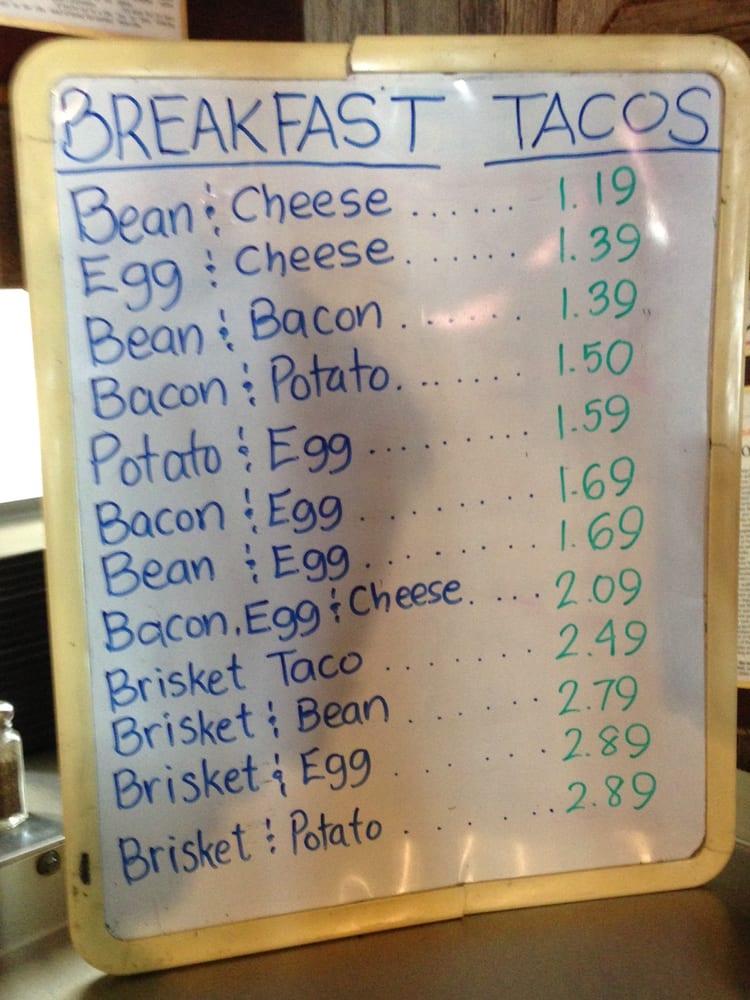 BREAKFAST TACOS
Bean & Cheese ...... 1.19
Egg & Cheese ....... 1.39
Bean & Bacon ....... 1.39
Bacon & Potato........ 1.50
Potato & Egg ......... 1.59
Bacon & Egg ......... 1.69
Bean & Egg ......... 1.69
Bacon, Egg & Cheese. .... 2.09
Brisket Taco ........ 2.49
Brisket & Bean ....... 2.79
Brisket & Egg ....... 2.89
Brisket & Potato ....... 2.89